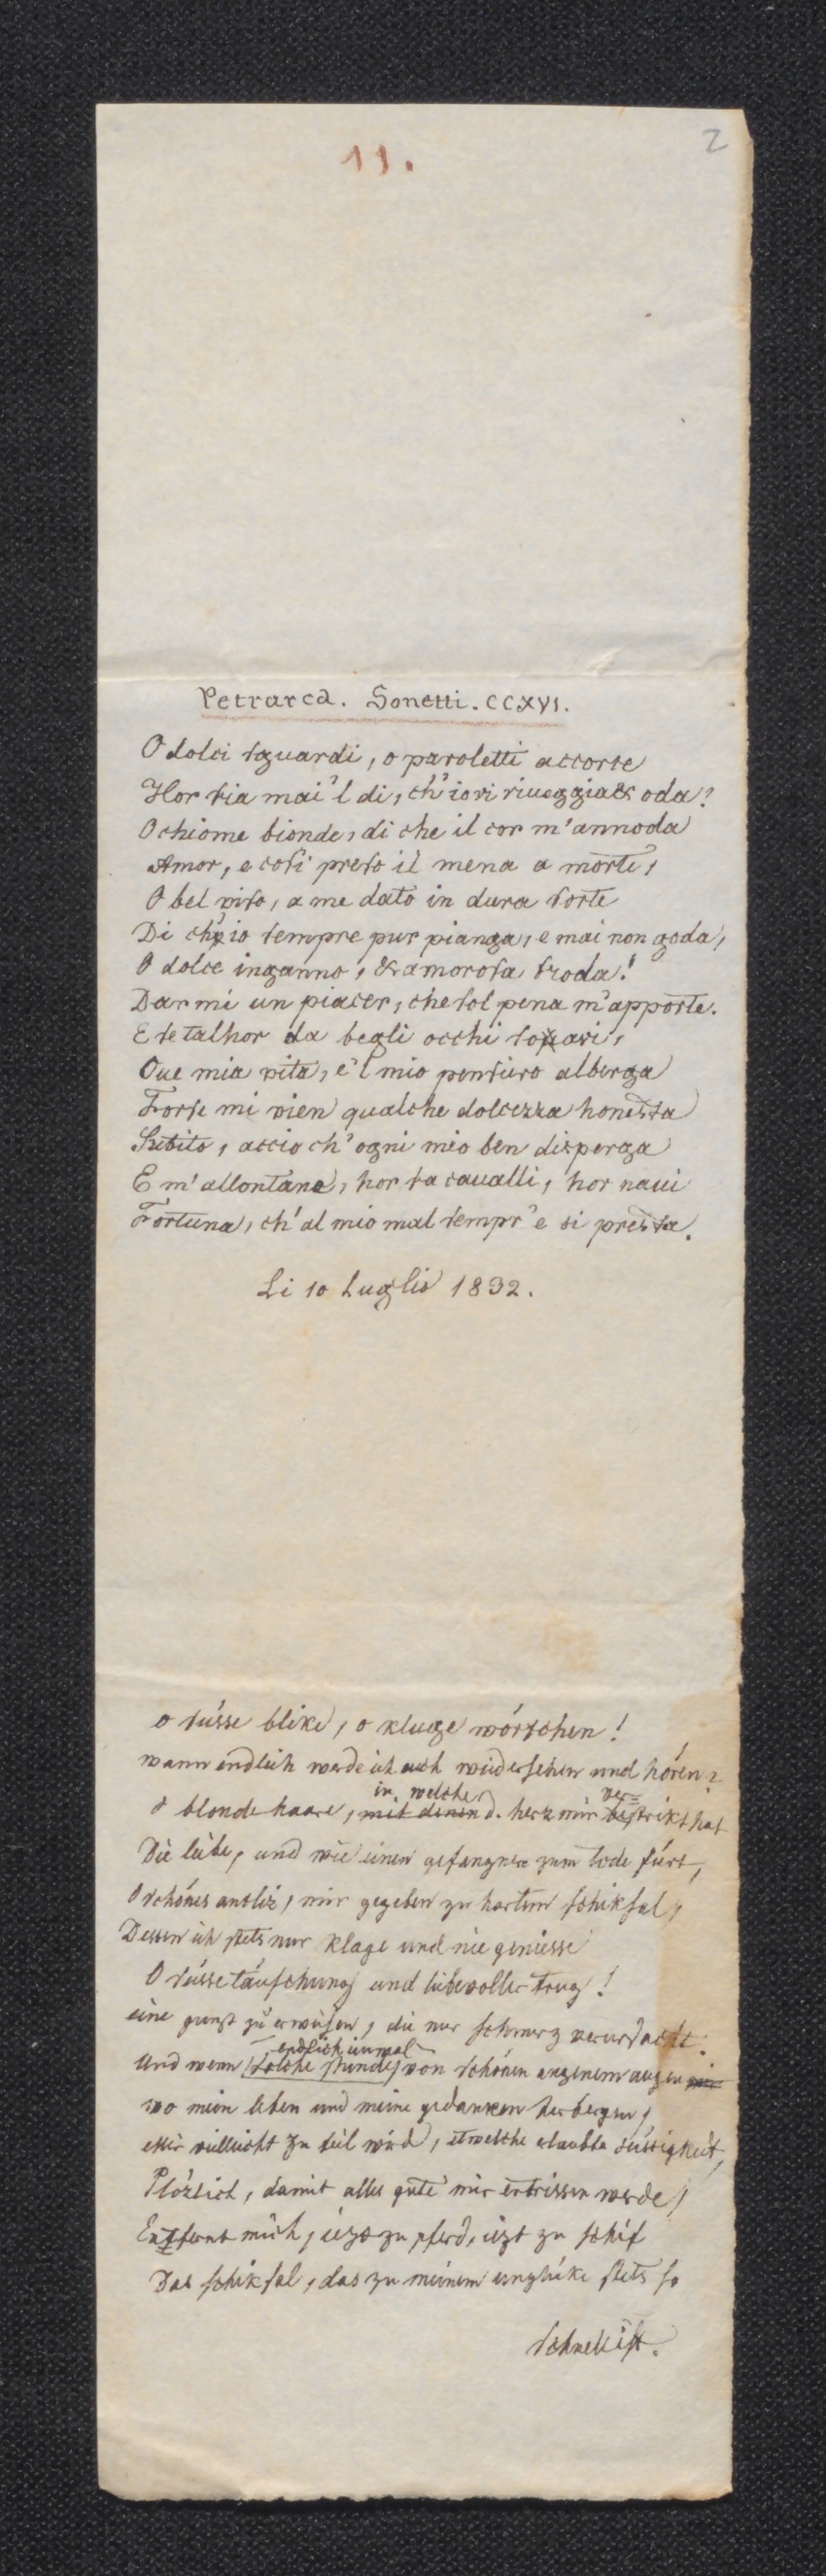 11.
2
Petrarca. Sonetti. CCXVI.
O dolci sguardi, o paroletti accorte
Hor sia mai'l di, ch'io vi riueggia & oda?
O chiome bionde, di che il cor m'annoda
Amor, e cosi preso il mena a morte,
O bel viso, a me dato in dura sorte
Di ch'io sempre pur pianga, e mai non goda,
O dolce inganno, & amorosa froda!
Darmi un piacer, che sol pena m'apporte.
E se talhor da begli occhi soavi,
Oue mia vita, e'l mio pensiero alberga
Forse mi vien qualche dolcezza honesta
Subito, accio ch'ogni mio ben disperga
E m'allontana, hor fa caualli, hor naui
Fortuna, ch'al mio mal sempr'e si presta.
Li 10 Luglio 1832.
o süsse blike, o kluge wörtchen!
wann endlich werde ich euch wiedersehen und hören?
in welche ver=
o blonde haare, mit denen d. herz mir bestrikt hat
Die liebe, und wie einen gefangnen zum tode fürt,
O schönes antliz, mir gegeben zu hartem schiksal,
Dessen ich stets nur klage und nie geniesse
O süsse täuschung und liebevoller trug!
eine gunst zu erweisen, die nur schmerz verursacht.
endlich einmal
Und wenn solche stunde von schönen angenemen augen mir
wo mein leben und meine gedanken herbergen,
Mir vielleicht zu teil wird, etwelche erlaubte süssigkeit,
Plözlich, damit alles gute mir entrissen werde,
Entfernt mich, iezo zu pferd, iezt zu schif
Das schiksal, das zu meinem unglüke stets so
schnell ist.